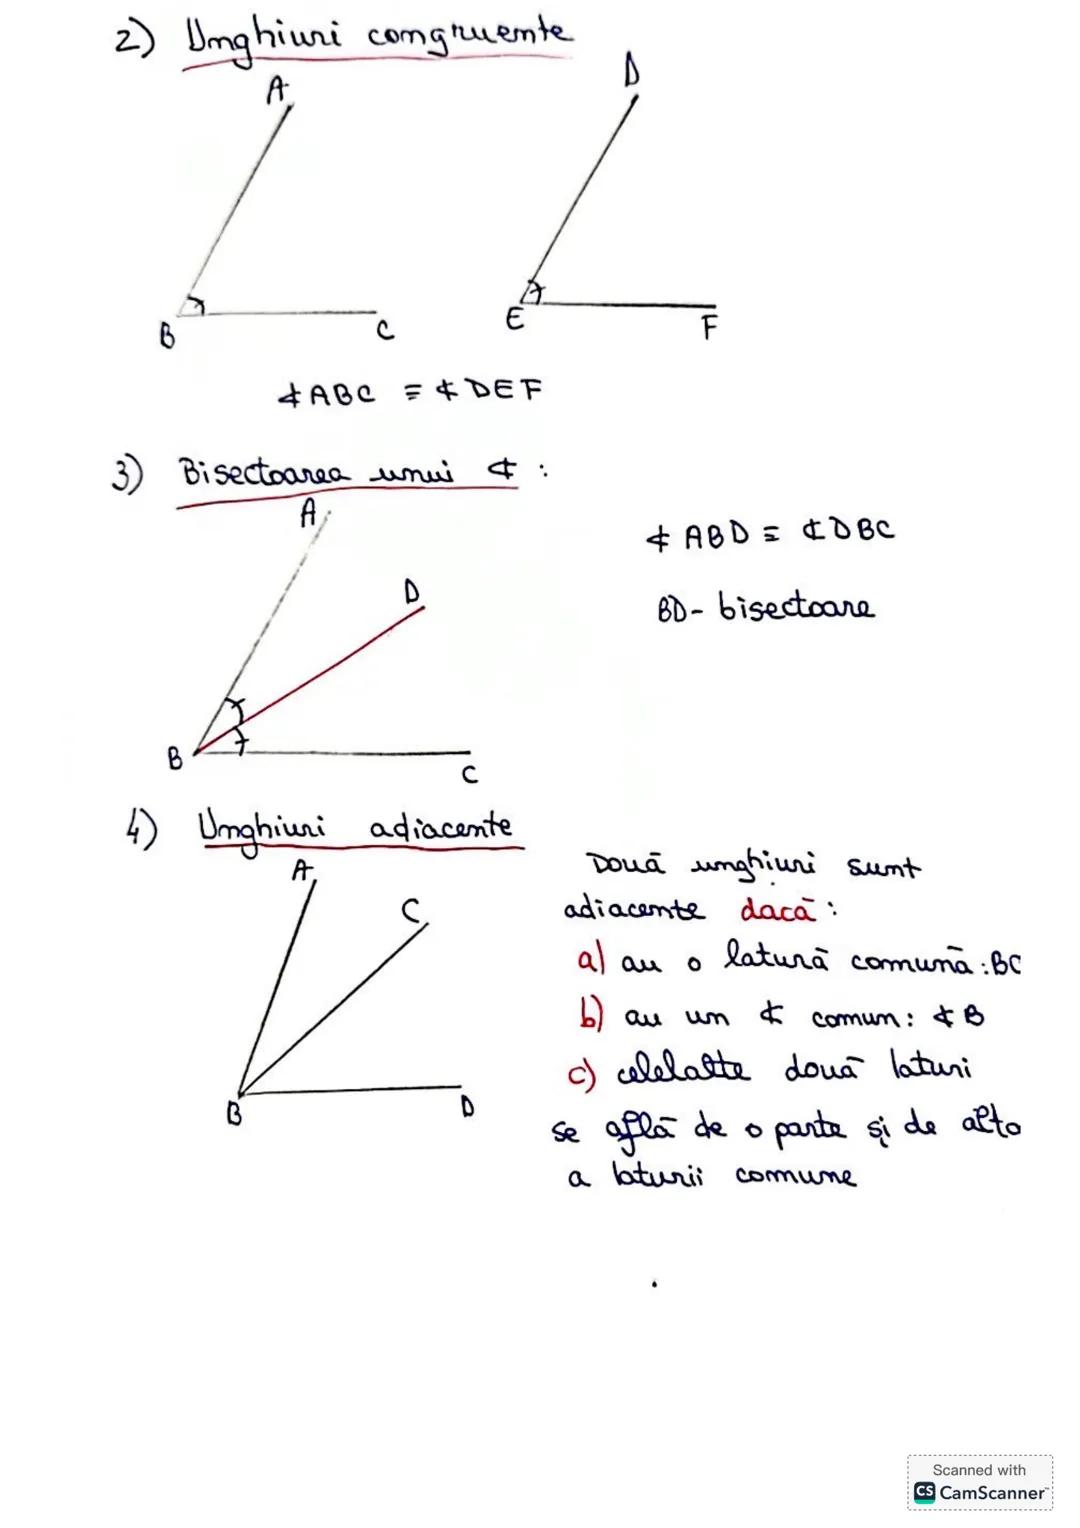 2) Unghiuri congruente
A
D
B
C
E
F
∢ABC ≡ ∢DEF
3) Bisectoarea unui ∢ :
A
∢ ABD ≡ ∢DBC
D
BD- bisectoare
B
C
4) Unghiuri adiacente
A
C
B
D
Două unghiuri sunt
adiacente dacă :
a) au o latură comună : BC
b) au un ∢ comun : ∢ B
c) celelalte două laturi
se află de o parte și de alta
a laturii comune
Scanned with
CS CamScanner™